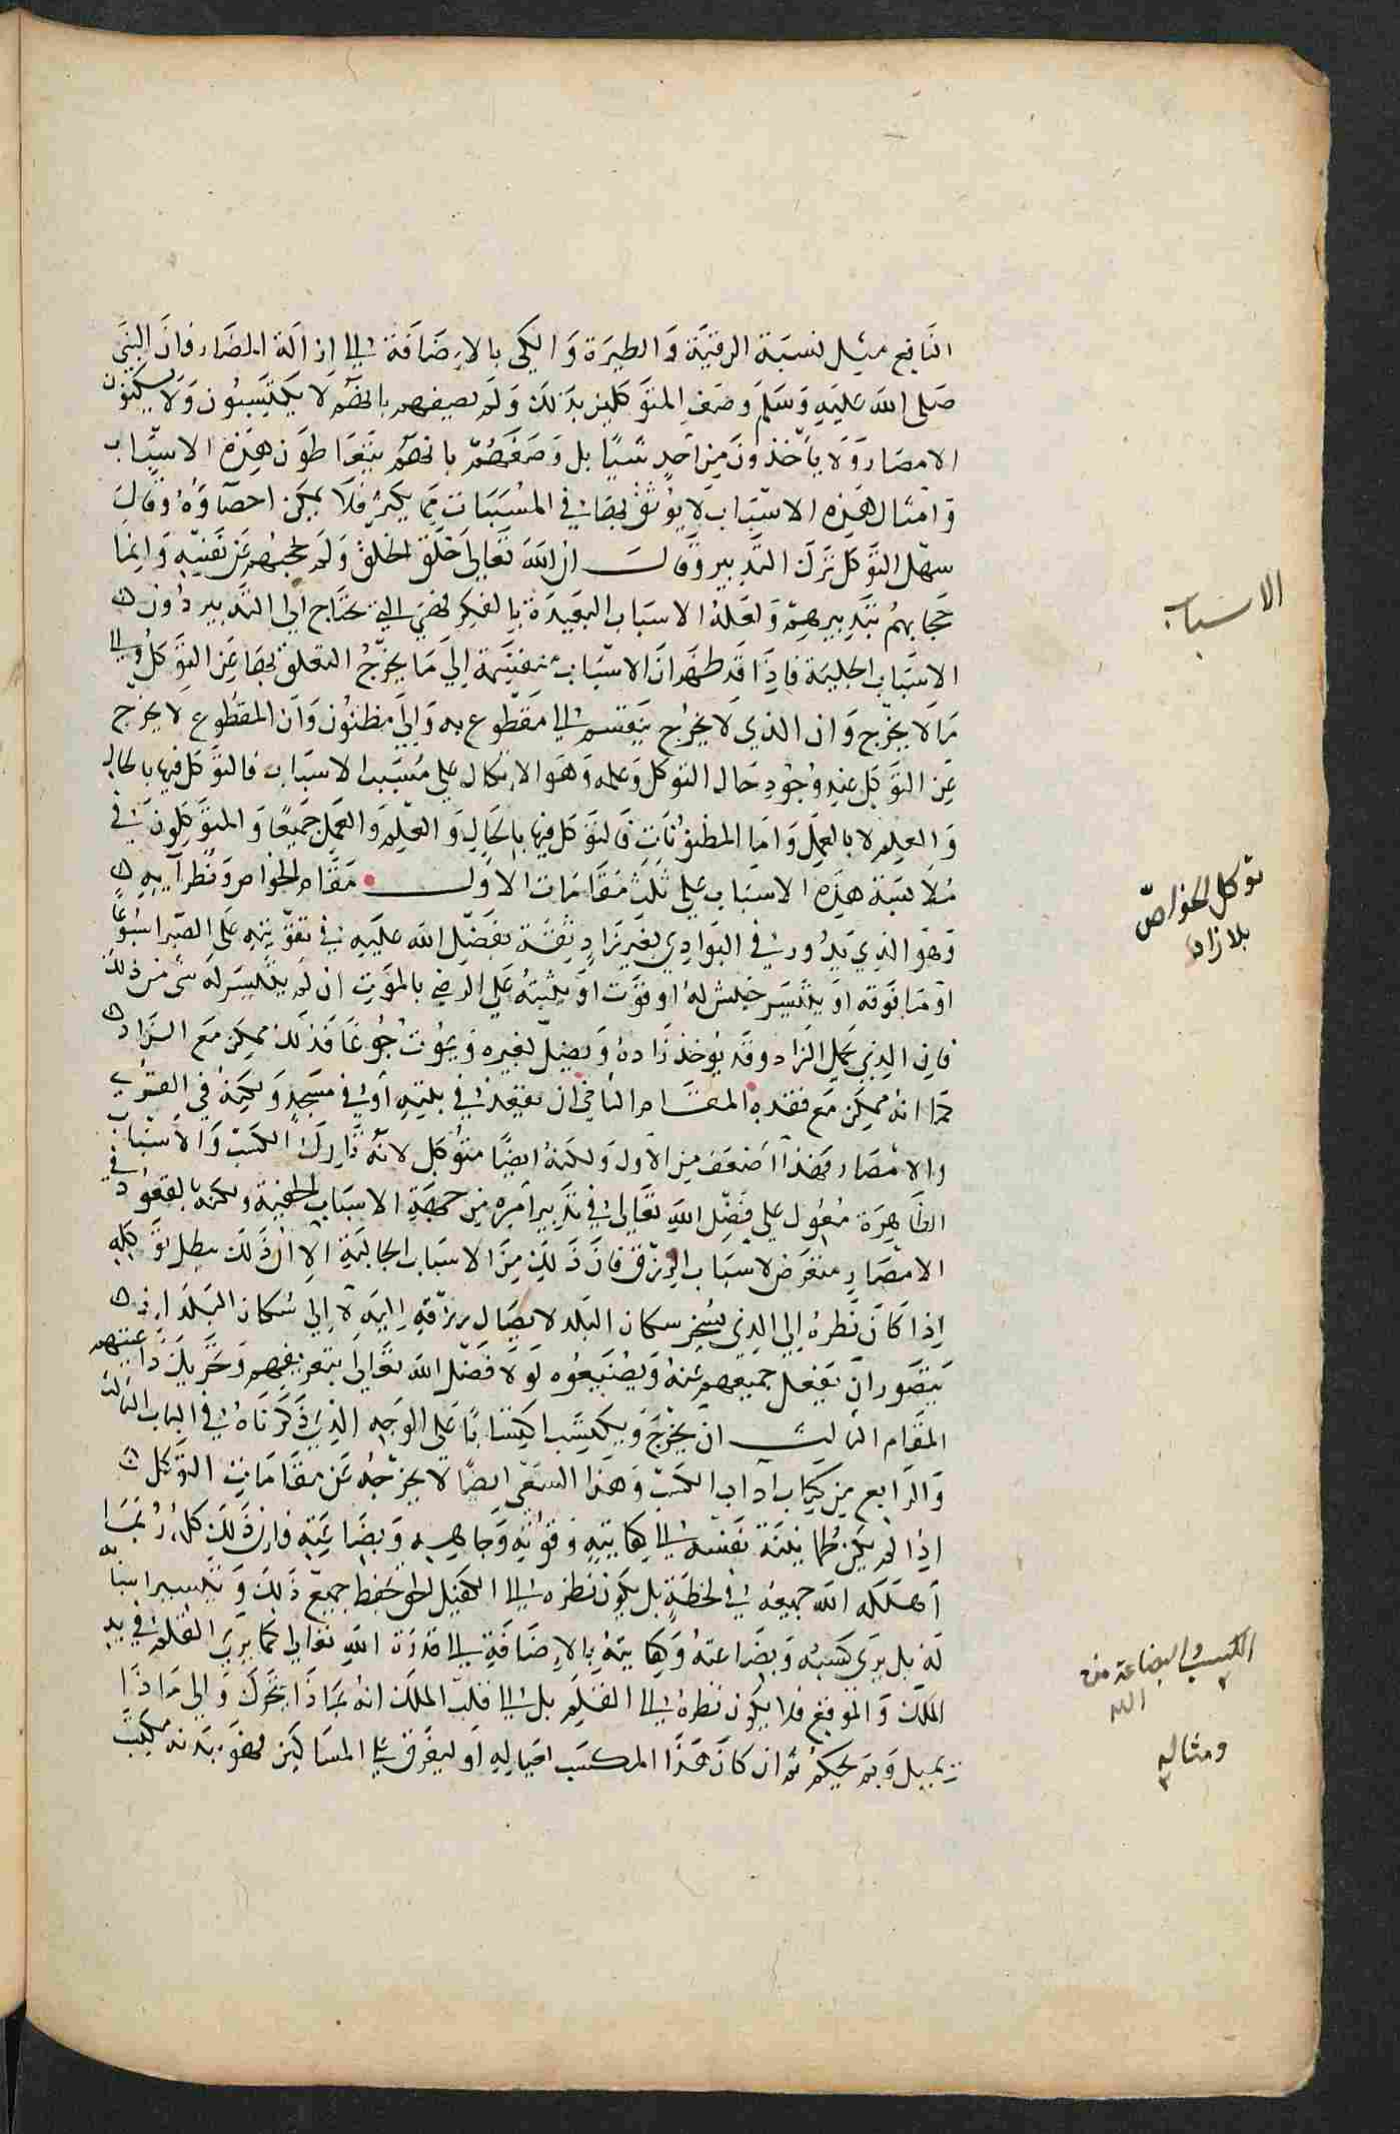 النافع مثل نسبة الرقية والطيرة والكي بالإضافة الي ازالة الضار فان النبي
صلى الله عليه وسلم وصف المتوكلين بذلك ولم يصفهم بانهم لا يكتسبون ولا يسكنون
الامصار ولا يأخذون من احد شيئا بل وصفهم بانهم يتعاطون هذه الاسباب
وامثال هذه الاسباب لا يوثق بها في المسببات مما يكثر فلا يمكن احصاؤه وقال
سهل التوكل ترك التدبير وقال ان الله تعالى خلق الخلق ولم يحجبهم عن نفسه وانما
حجابهم بتدبيرهم ولعله الاسباب البعيدة بالفكر فهي التي تحتاج الى التدبير دون
الاسباب الجلية فاذا قد ظهر ان الاسباب منقسمة الى ما يخرج التعلق بها عن التوكل والي
ما لا يخرج وان الذي لا يخرج ينقسم الي مقطوع به والى مظنون وان المقطوع لا يخرج
عن التوكل عند وجود حال التوكل وعلمه وهو الاتكال على مسبب الاسباب فالتوكل فيها بالحال
والعلم لا بالعمل واما المظنونات فالتوكل فيها بالحال والعلم والعمل جميعا والمتوكلون في
ملابسة هذه الاسباب على ثلث مقامات الاول مقام الخواص ونظرآيه
وهو الذي يدور في البوادي بغير زاد ثقة بفضل الله عليه في تقويته على الصبر اسبوعا
او ما فوقه او يتيسر حشيش له او قوت او يثبته على الرضي بالموت ان لم يتيسر له شي من ذلك
فان الذي يحمل الزاد وقد يوخذ زاده ويضل بغيره ويموت جوعا فذلك ممكن مع الزاد
كما انه ممكن مع فقده المقام الثاني ان يقعد في بيته او في مسجد ولكنه في القري
والامصار فهذا اضعف من الاول ولكنه ايضا متوكل لانه تارك الكسب والاسباب
الظاهرة معول على فضل الله تعالى في تدبير امره من جهة الاسباب الخفية ولكنه بالقعود في
الامصار متعرض لاسباب الرزق فان ذلك من الاسباب الجالبة الا ان ذلك لا يبطل توكله
اذا كان نظره الى الذي يسخر سكان البلد لايصال رزقه اليه لا الى سكان البلد اذ
يتصور ان يغفل جميعهم عنه ويضيعوه لولا فضل الله تعالى بتعريفهم وتحريك دواعيهم
المقام الثالث ان يخرج ويكتسب اكتسابا على الوجه الذي ذكرناه في الباب الثالث
والرابع من كتاب آداب الكسب وهذا السعي ايضا لا يخرجه عن مقامات التوكل
اذا لم يكن طمانينة نفسه الي كفايته وقوته وجاهه وبضاعته فان ذلك كله ربما
اهلكه الله جميعه في لحظة بل يكون نظره الي الكفيل الحق بحفظ جميع ذلك وتيسير اسبابه
له بل يرى كسبه وبضاعته وكفايته بالإضافة الي قدرة الله تعالى كما يرى القلم في يد
الملك الموقع فلا يكون نظره الي القلم بل الي قلب الملك انه بماذا يتحرك والى ماذا
يميل وبم يحكم ثم ان كان هذا المكتسب لعياله او ليفرق على المساكين فهو ببدنه مكتسب
الاسباب
توكل الخواص
بلا زاد
الكسب والبضاعة من
الله
ومثاله